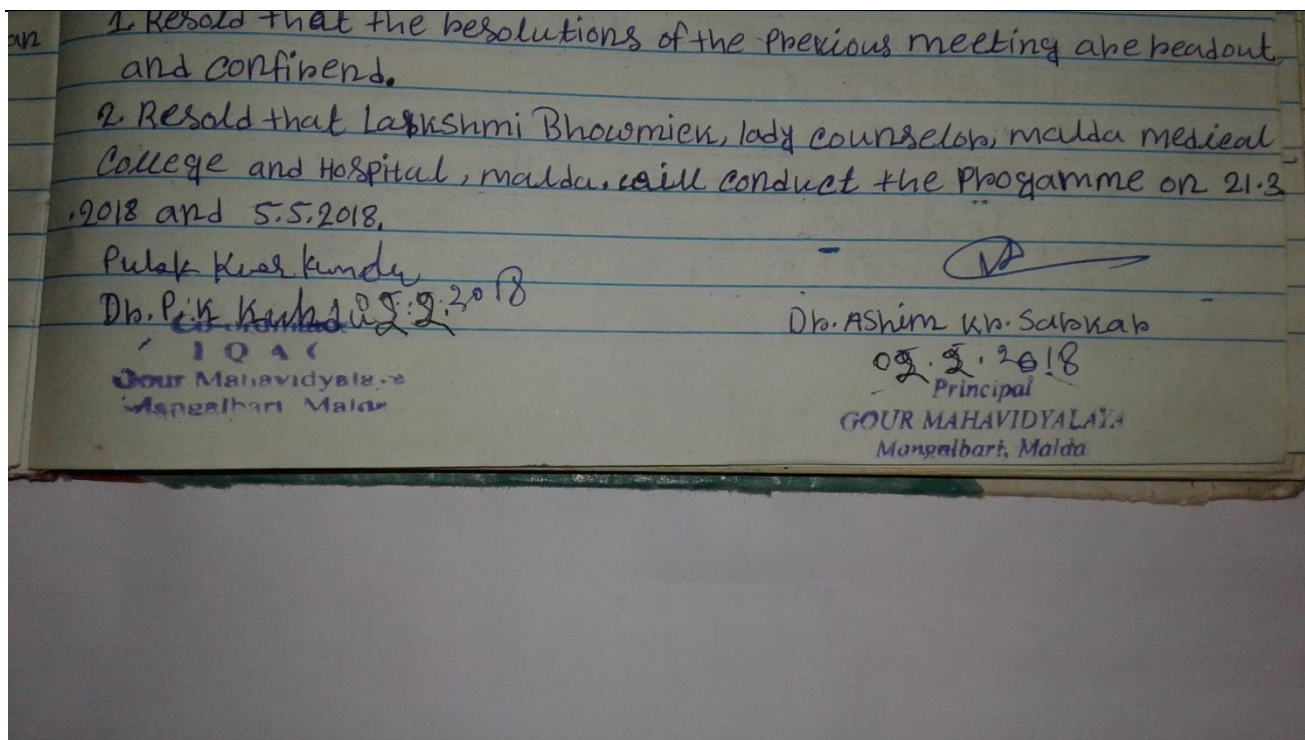 an
1. Resold that the besolutions of the Previous meeting are readout
and confirend.
2. Resold that Lakshmi Bhowmick, lady counselor, malda medical
College and Hospital, malda. will conduct the Programme on 21.3
.2018 and 5.5.2018.
Pulak Kundu
Dr. P.K Kundu .2.2018
Dr. Ashim Kr. Sarkar
.2.2018
I Q A C
Gour Mahavidyalaya
Mangalbari Malda
Principal
GOUR MAHAVIDYALAYA
Mangalbari, Malda